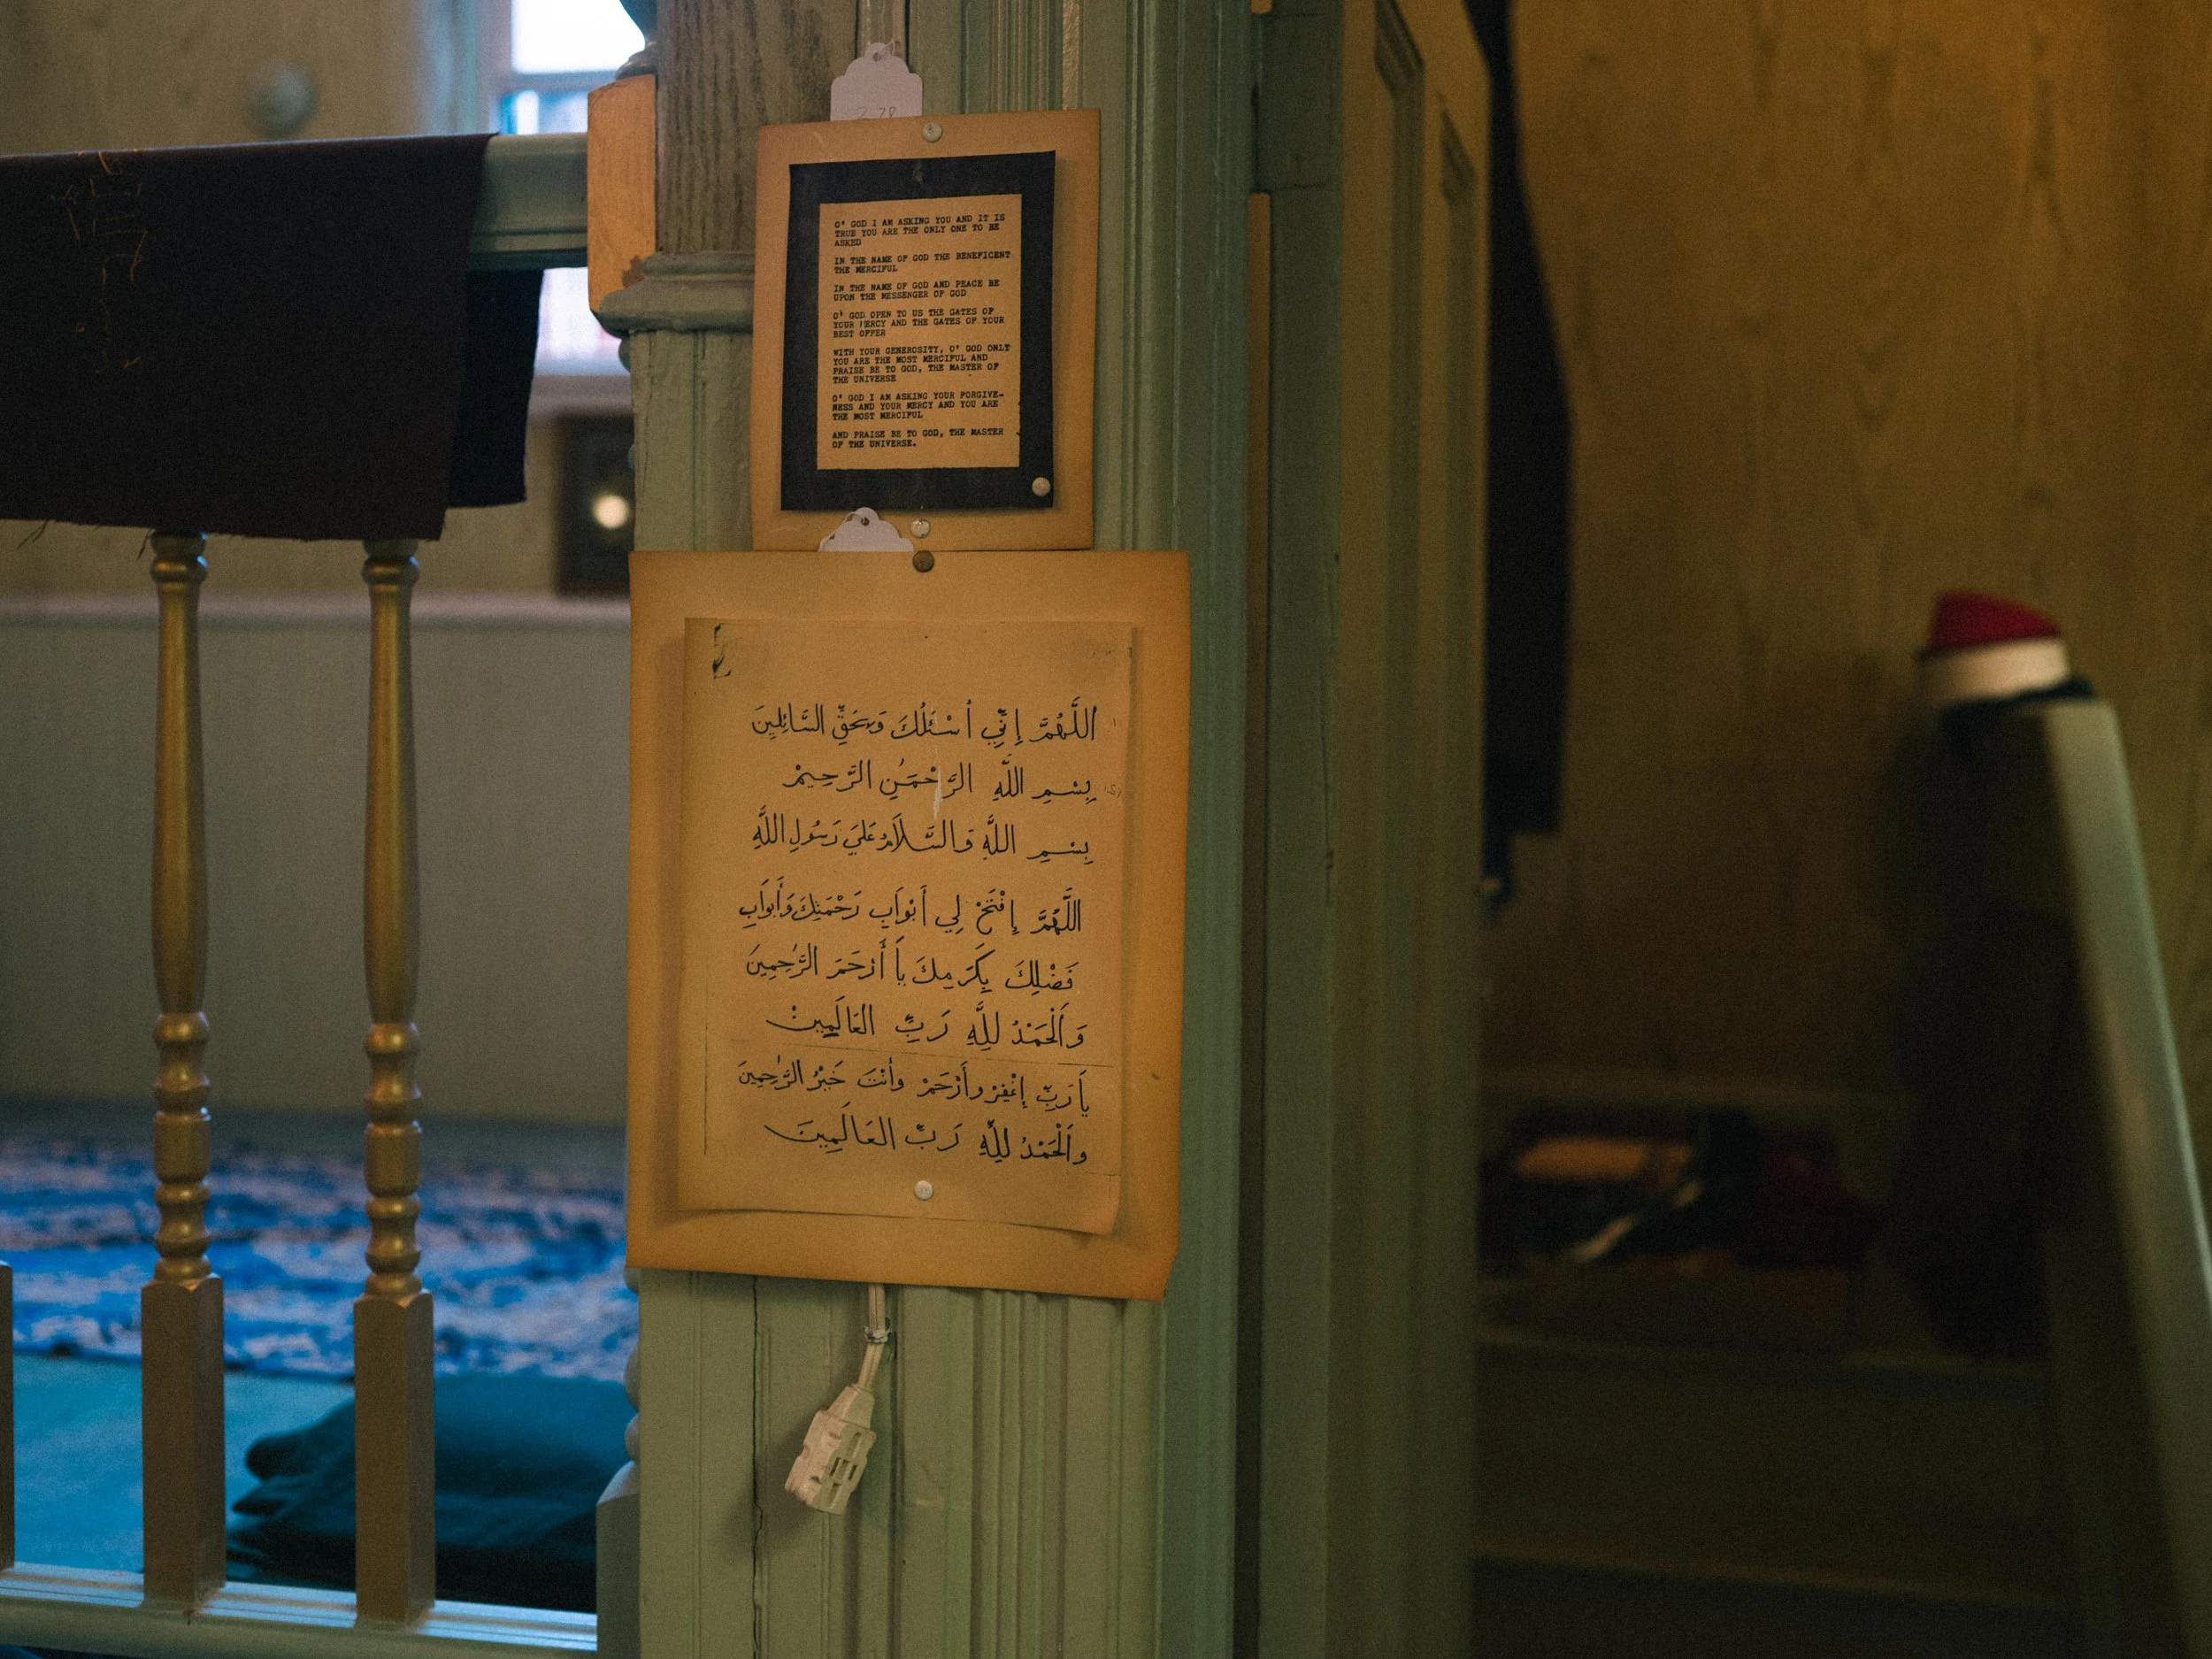 O' GOD I AM ASKING YOU AND IT IS
TRUE YOU ARE THE ONLY ONE TO BE
ASKED
IN THE NAME OF GOD THE BENEFICENT
THE MERCIFUL
IN THE NAME OF GOD AND PEACE BE
UPON THE MESSENGER OF GOD
O' GOD OPEN TO US THE GATES OF
YOUR MERCY AND THE GATES OF YOUR
BEST OFFER
WITH YOUR GENEROSITY, O' GOD ONLY
YOU ARE THE MOST MERCIFUL AND
PRAISE BE TO GOD, THE MASTER OF
THE UNIVERSE
O' GOD I AM ASKING YOUR FORGIVE-
NESS AND YOUR MERCY AND YOU ARE
THE MOST MERCIFUL
AND PRAISE BE TO GOD, THE MASTER
OF THE UNIVERSE.
اللَّهُمَّ إِنِّي أَسْئَلُكَ وَبِحَقِّ السَّائِلِينَ
بِسْمِ اللَّهِ الرَّحْمَٰنِ الرَّحِيمْ
بِسْمِ اللَّهِ وَالسَّلَامُ عَلَىَ رَسُولِ اللَّهِ
اللَّهُمَّ إِفْتَحْ لِي أَبْوَابِ رَحْمَتِكَ وَأَبْوَابِ
فَضْلِكَ بِكَرَمِكَ يَا أَرْحَمَ الرَّٰحِمِينَ
وَالْحَمْدُ لِلَّهِ رَبِّ العَالَمِينْ
يَا رَبِّ إِغْفِرْ وَأَرْحَمْ وَأَنْتَ خَيْرُ الرَّٰحِمِينَ
وَالْحَمْدُ لِلَّهِ رَبِّ العَالَمِينَ